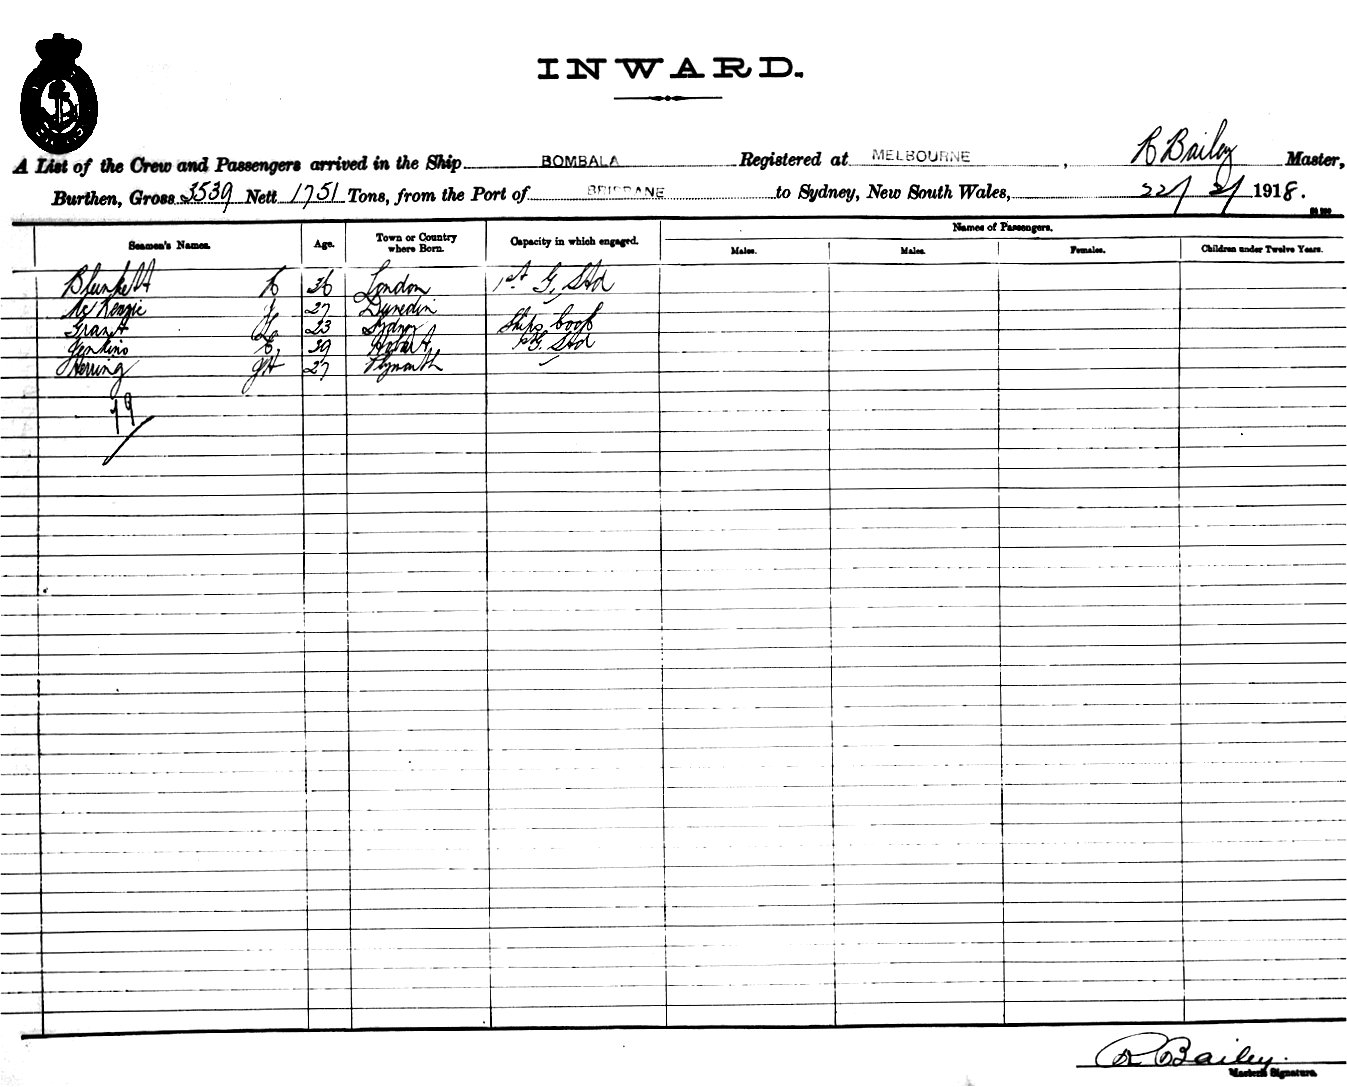 INWARD.
A List of the Crew and Passengers arrived in the Ship BOMBALA Registered at MELBOURNE, R Bailey Master,
Burthen, Gross 3539 Nett 1751 Tons, from the Port of BRISBANE to Sydney, New South Wales, 22/ 2/ 1918.
Names of Passengers.
Seamen's Names. Age. Town or Country where Born. Capacity in which engaged. Males. Males. Females. Children under Twelve Years.
Plunkett 36 London 1st G. Std
McKenzie J 27 Dunedin
Grant 23 Sydney Ships Cook
Jenkins E 39 Hobart G. Std
Herring JH 27 Plymouth
79
R Bailey
Master's Signature.